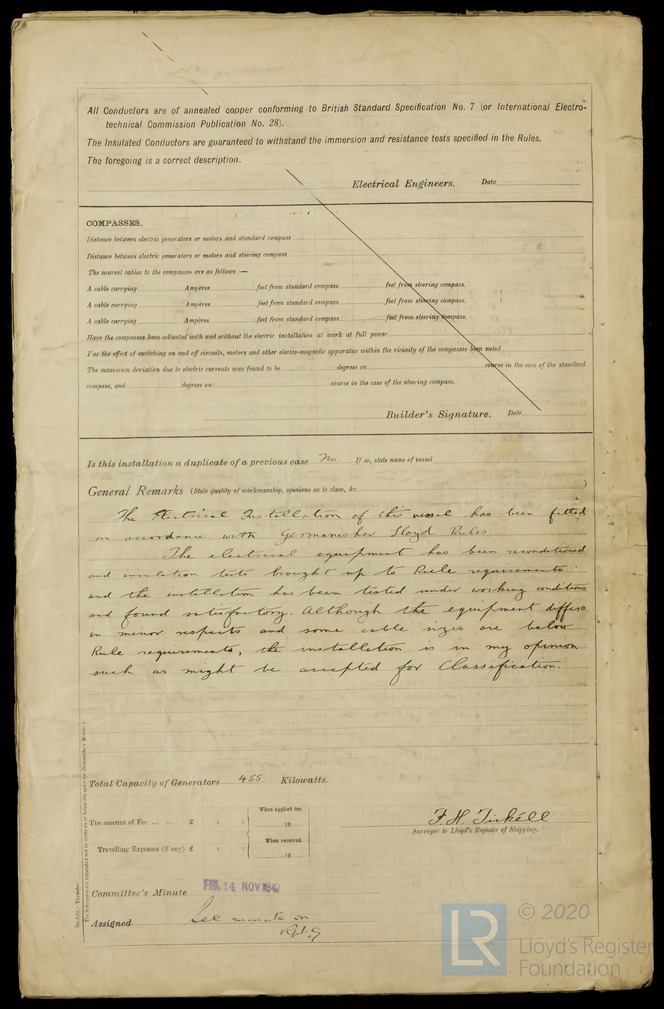 All Conductors are of annealed copper conforming to British Standard Specification No. 7 (or International Electro-
technical Commission Publication No. 28).
The Insulated Conductors are guaranteed to withstand the immersion and resistance tests specified in the Rules.
The foregoing is a correct description.
Electrical Engineers. Date
COMPASSES.
Distance between electric generators or motors and standard compass
Distance between electric generators or motors and steering compass
The nearest cables to the compasses are as follows :—
A cable carrying Ampères feet from standard compass feet from steering compass.
A cable carrying Ampères feet from standard compass feet from steering compass.
A cable carrying Ampères feet from standard compass feet from steering compass.
Have the compasses been adjusted with and without the electric installation at work at full power
Has the effect of switching on and off circuits, motors and other electro-magnetic apparatus within the vicinity of the compasses been noted
The maximum deviation due to electric currents was found to be degrees on course in the case of the standard
compass, and degrees on course in the case of the steering compass.
Builder's Signature. Date
Is this installation a duplicate of a previous case No. If so, state name of vessel
General Remarks (State quality of workmanship, opinions as to class, &c.
The Electrical Installation of this vessel has been fitted
in accordance with Germanisher Lloyd Rules
The electrical equipment has been reconditioned
and insulation tests brought up to Rule requirements
and the installation has been tested under working conditions
and found satisfactory. Although the equipment differs
in minor respects and some cable sizes are below
Rule requirements, the installation is in my opinion
such as might be accepted for Classification.
Total Capacity of Generators 455 Kilowatts.
The amount of Fee ... ... £ : : When applied for,
19
Travelling Expenses (if any) £ : : When received,
19
F. H. Tickell
Surveyor to Lloyd's Register of Shipping.
Committee's Minute FRI. 14 NOV 1947
Assigned See minute on
Rpt. 9
© 2020
LR
Lloyd's Register
Foundation